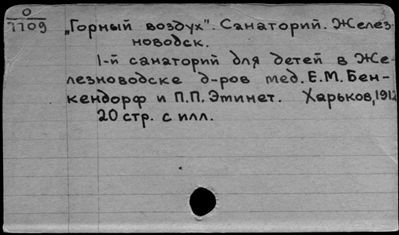 О
1109
„Горный воздух". Санаторий. Желез-
новодск.
1-й санаторий для детей в Же-
лезноводске д-ров мед. Е.М. Бен-
кендорф и П.П. Этинет. Харьков, 1912
20 стр. с илл.